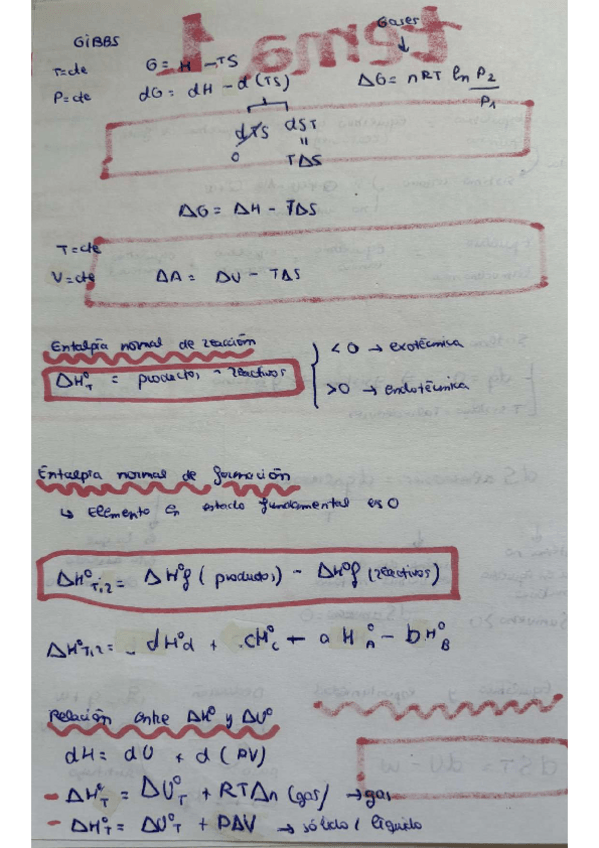 tema 1
GIBBS
Gases
↓
T=cte
G = H - TS
P=cte
dG = dH - d(TS)
ΔG = nRT ln P₂/P₁
dTS dST
0 "
TΔS
ΔG = ΔH - TΔS
T=cte
V=cte ΔA = ΔU - TΔS
Entalpía normal de reacción
ΔH°T = productos - reactivos
< 0 → exotérmica
>0 → endotérmica
Entalpía normal de formación
↳ Elemento en estado fundamental es 0
ΔH°T,2 = ΔH°f (productos) - ΔH°f (reactivos)
ΔH°T,2 = dH°d + cH°C - aH°A - bH°B
Relación entre ΔH° y ΔU°
dH = dU + d(PV)
- ΔH°T = ΔU°T + RTΔn (gas) → gas
- ΔH°T = ΔU°T + PΔV → sólido / líquido